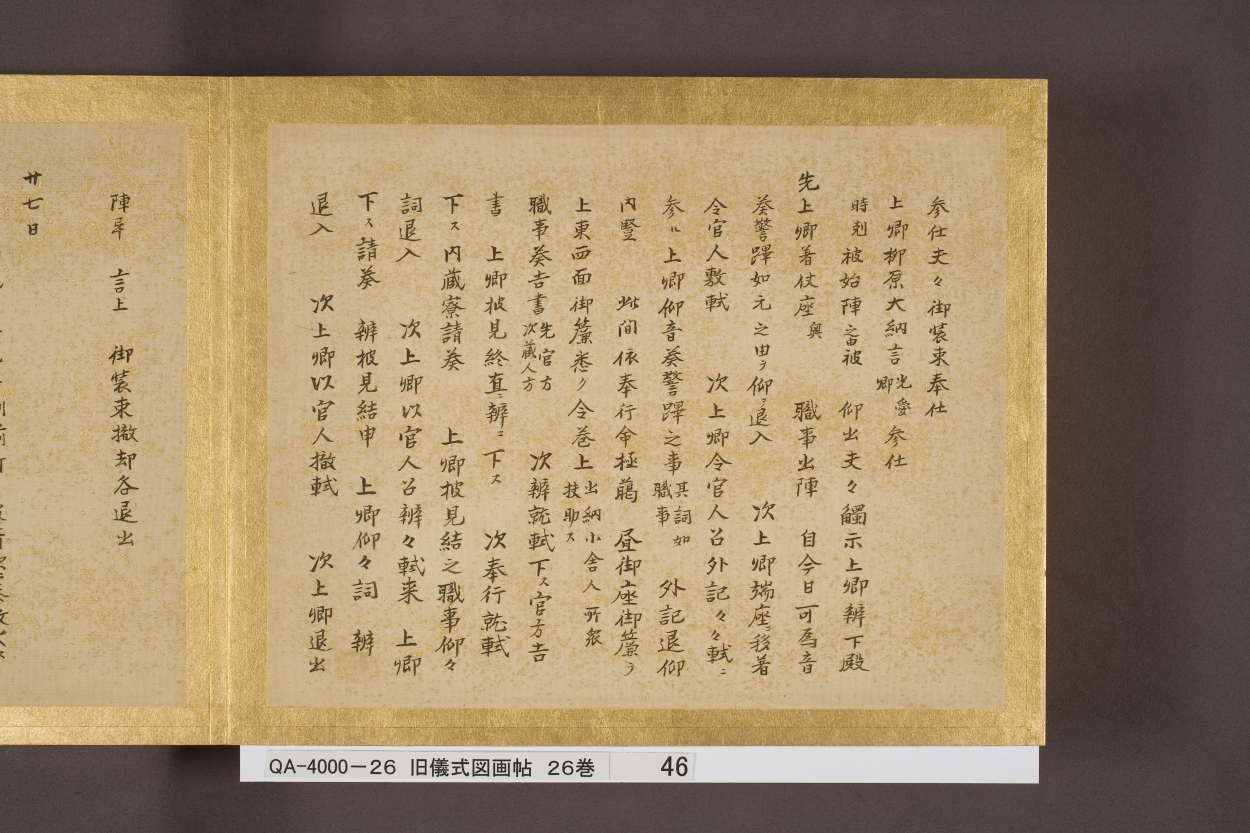 参仕夫々御装束奉仕
上卿柳原大納言光愛卿参仕
時剋被始陣之由被 仰出夫々觸示上卿辨下殿
先上卿着仗座奥 職事出陣 自今日可為音
奏警蹕如元之由ヲ仰ヲ退入 次上卿端座ニ移着
令官人敷軾 次上卿令官人召外記々々軾ニ
参ル上卿仰音奏警蹕之事其詞如職事 外記退仰
内豎 此間依奉行命極﨟 昼御座御簾ヲ
上東西面御簾悉ク令巻上出納小舎人所衆扶助ス
職事奏吉書先官方次蔵人方 次辨就軾下ス官方吉
書 上卿披見終直ニ辨ニ下ス 次奉行就軾
下ス内蔵寮請奏 上卿披見結之職事仰々
詞退入 次上卿以官人召辨々軾来 上卿
下ス請奏 辨披見結申 上卿仰々詞 辨
退入 次上卿以官人撤軾 次上卿退出
陣畢 言上 御装束撤却各退出
廿七日
QA-4000-26 旧儀式図画帖 26巻 46